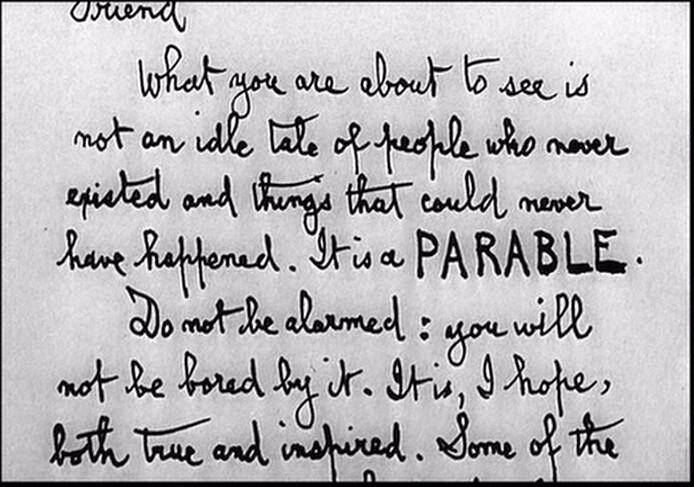 Friend
What you are about to see is
not an idle tale of people who never
existed and things that could never
have happened. It is a PARABLE.
Do not be alarmed : you will
not be bored by it. It is, I hope,
both true and inspired. Some of the